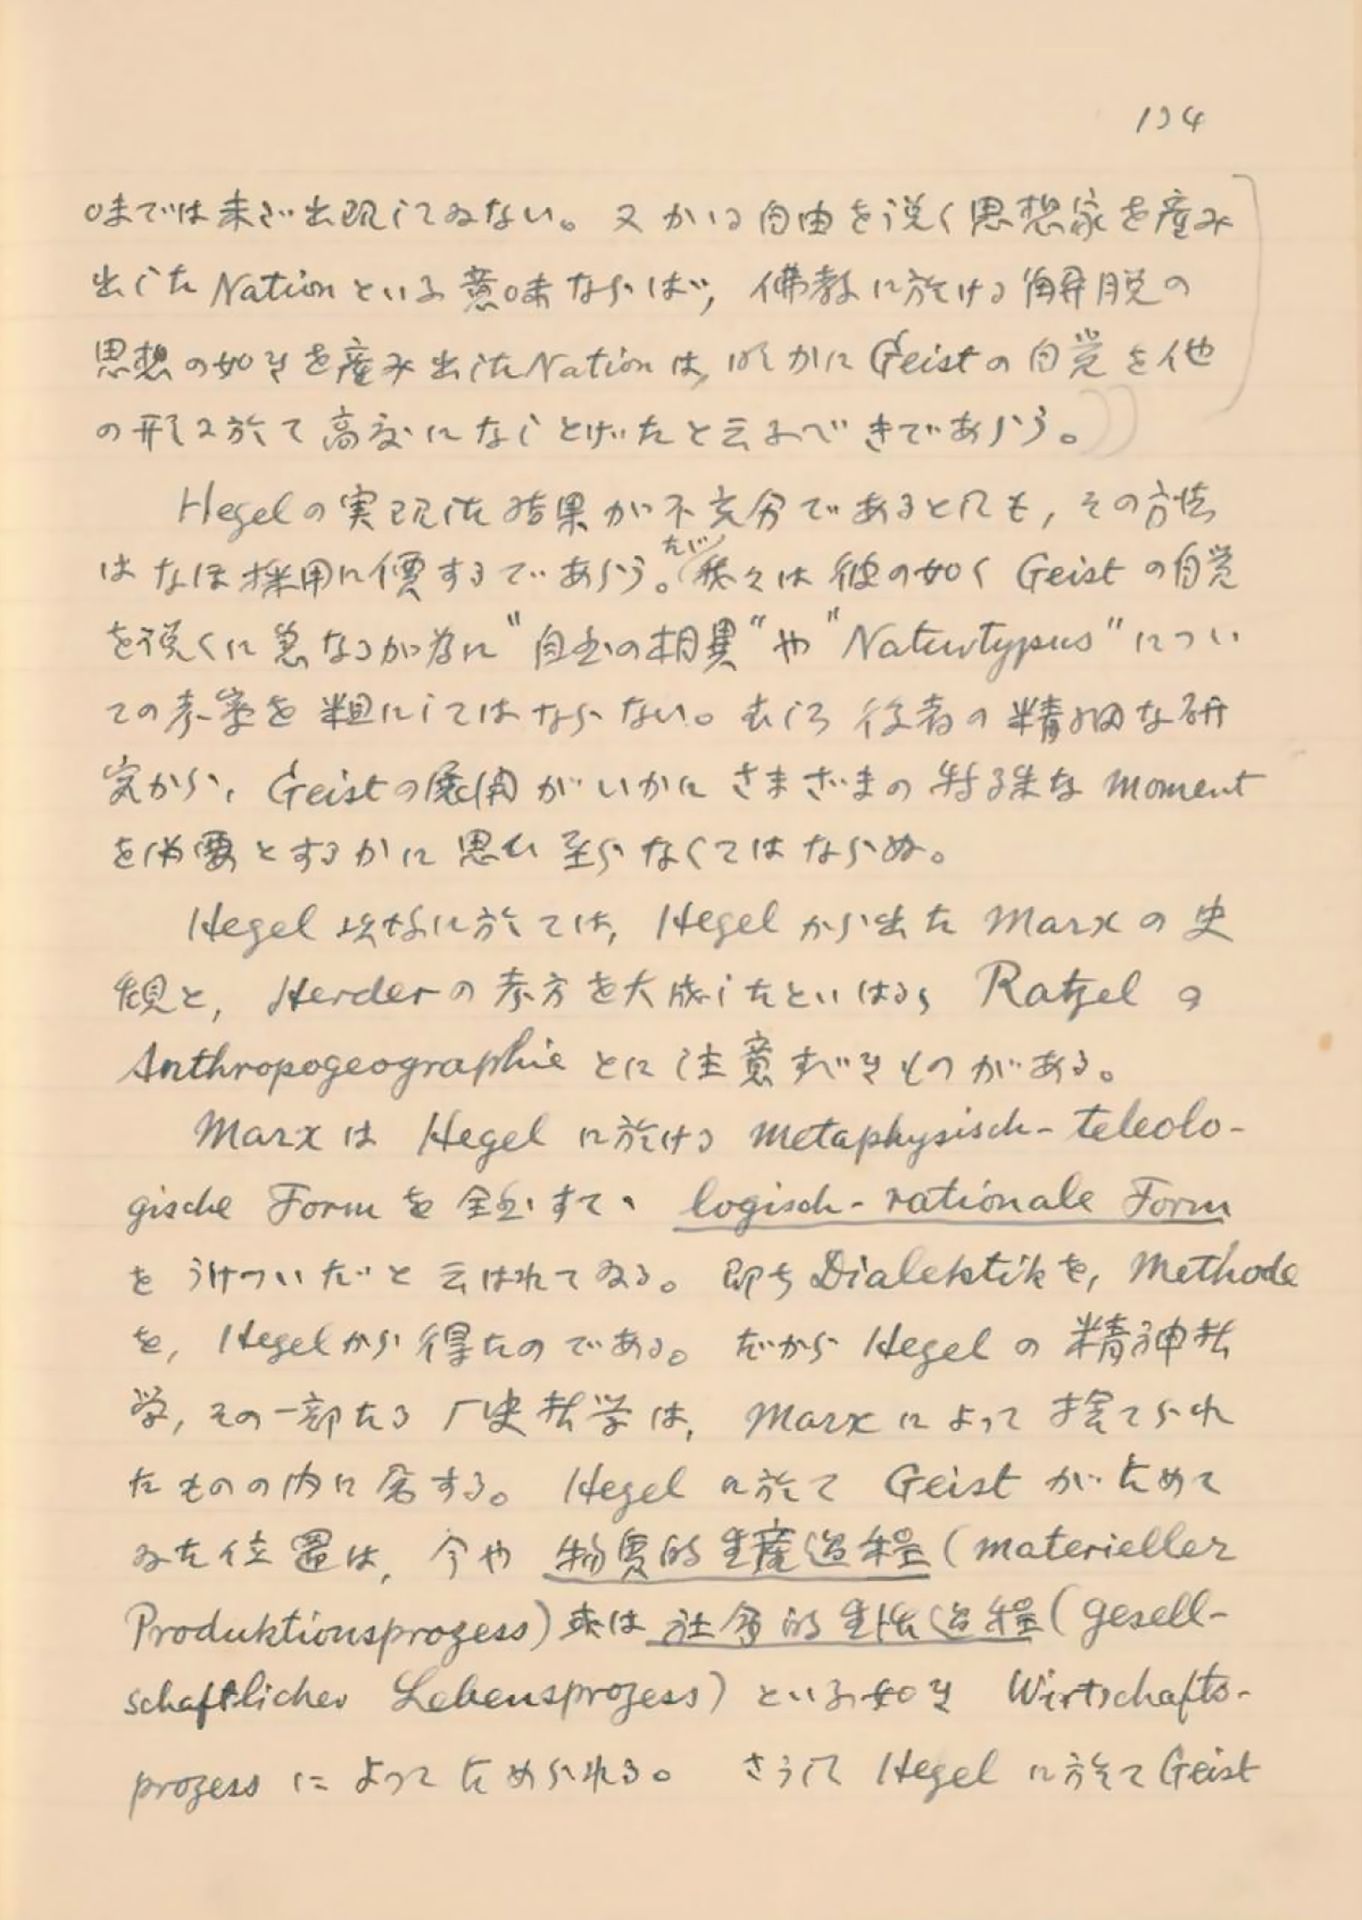 134
味までは未だ出現してゐない。又かゝる自由を説く思想家を産み
出したNationといふ意味ならば、佛教に於ける解脱の
思想の如きを産み出したNationは、明かにGeistの自覚を他
の形に於て高度になしとげたと云ふべきであらう。
Hegelの実現した結果が不充分であるとしても、その方法
はなほ採用に價するであらう。たゞ我々は彼の如くGeistの自覚
を説くに急なるが為に"自然の相異"や"Naturtypus"につい
ての考察を粗にしてはならない。むしろ後者の精細な研
究から、Geistの展開がいかにさまざまの特殊なMoment
を必要とするかに思ひ至らなくてはならぬ。
Hegel以後に於ては、Hegelから出たMarxの史
観と、Herderの考方を大成したといはるゝRatzelの
Anthropogeographieとに注意すべきものがある。
MarxはHegelに於けるmetaphysisch-teleolo-
gische Formを全然すて、logisch-rationale Form
をうけついだと云はれてゐる。即ちDialektikを、Methode
を、Hegelから得たのである。だからHegelの精神哲
学、その一部たる歴史哲学は、Marxによって捨てられ
たものの内に属する。Hegelに於てGeistが占めて
ゐた位置は、今や物質的生産過程(materieller
Produktionsprozess)或は社会的生活過程(gesell-
schaftlicher Lebensprozess)といふ如きWirtschafts-
prozessによって占められる。さうしてHegelに於てGeist